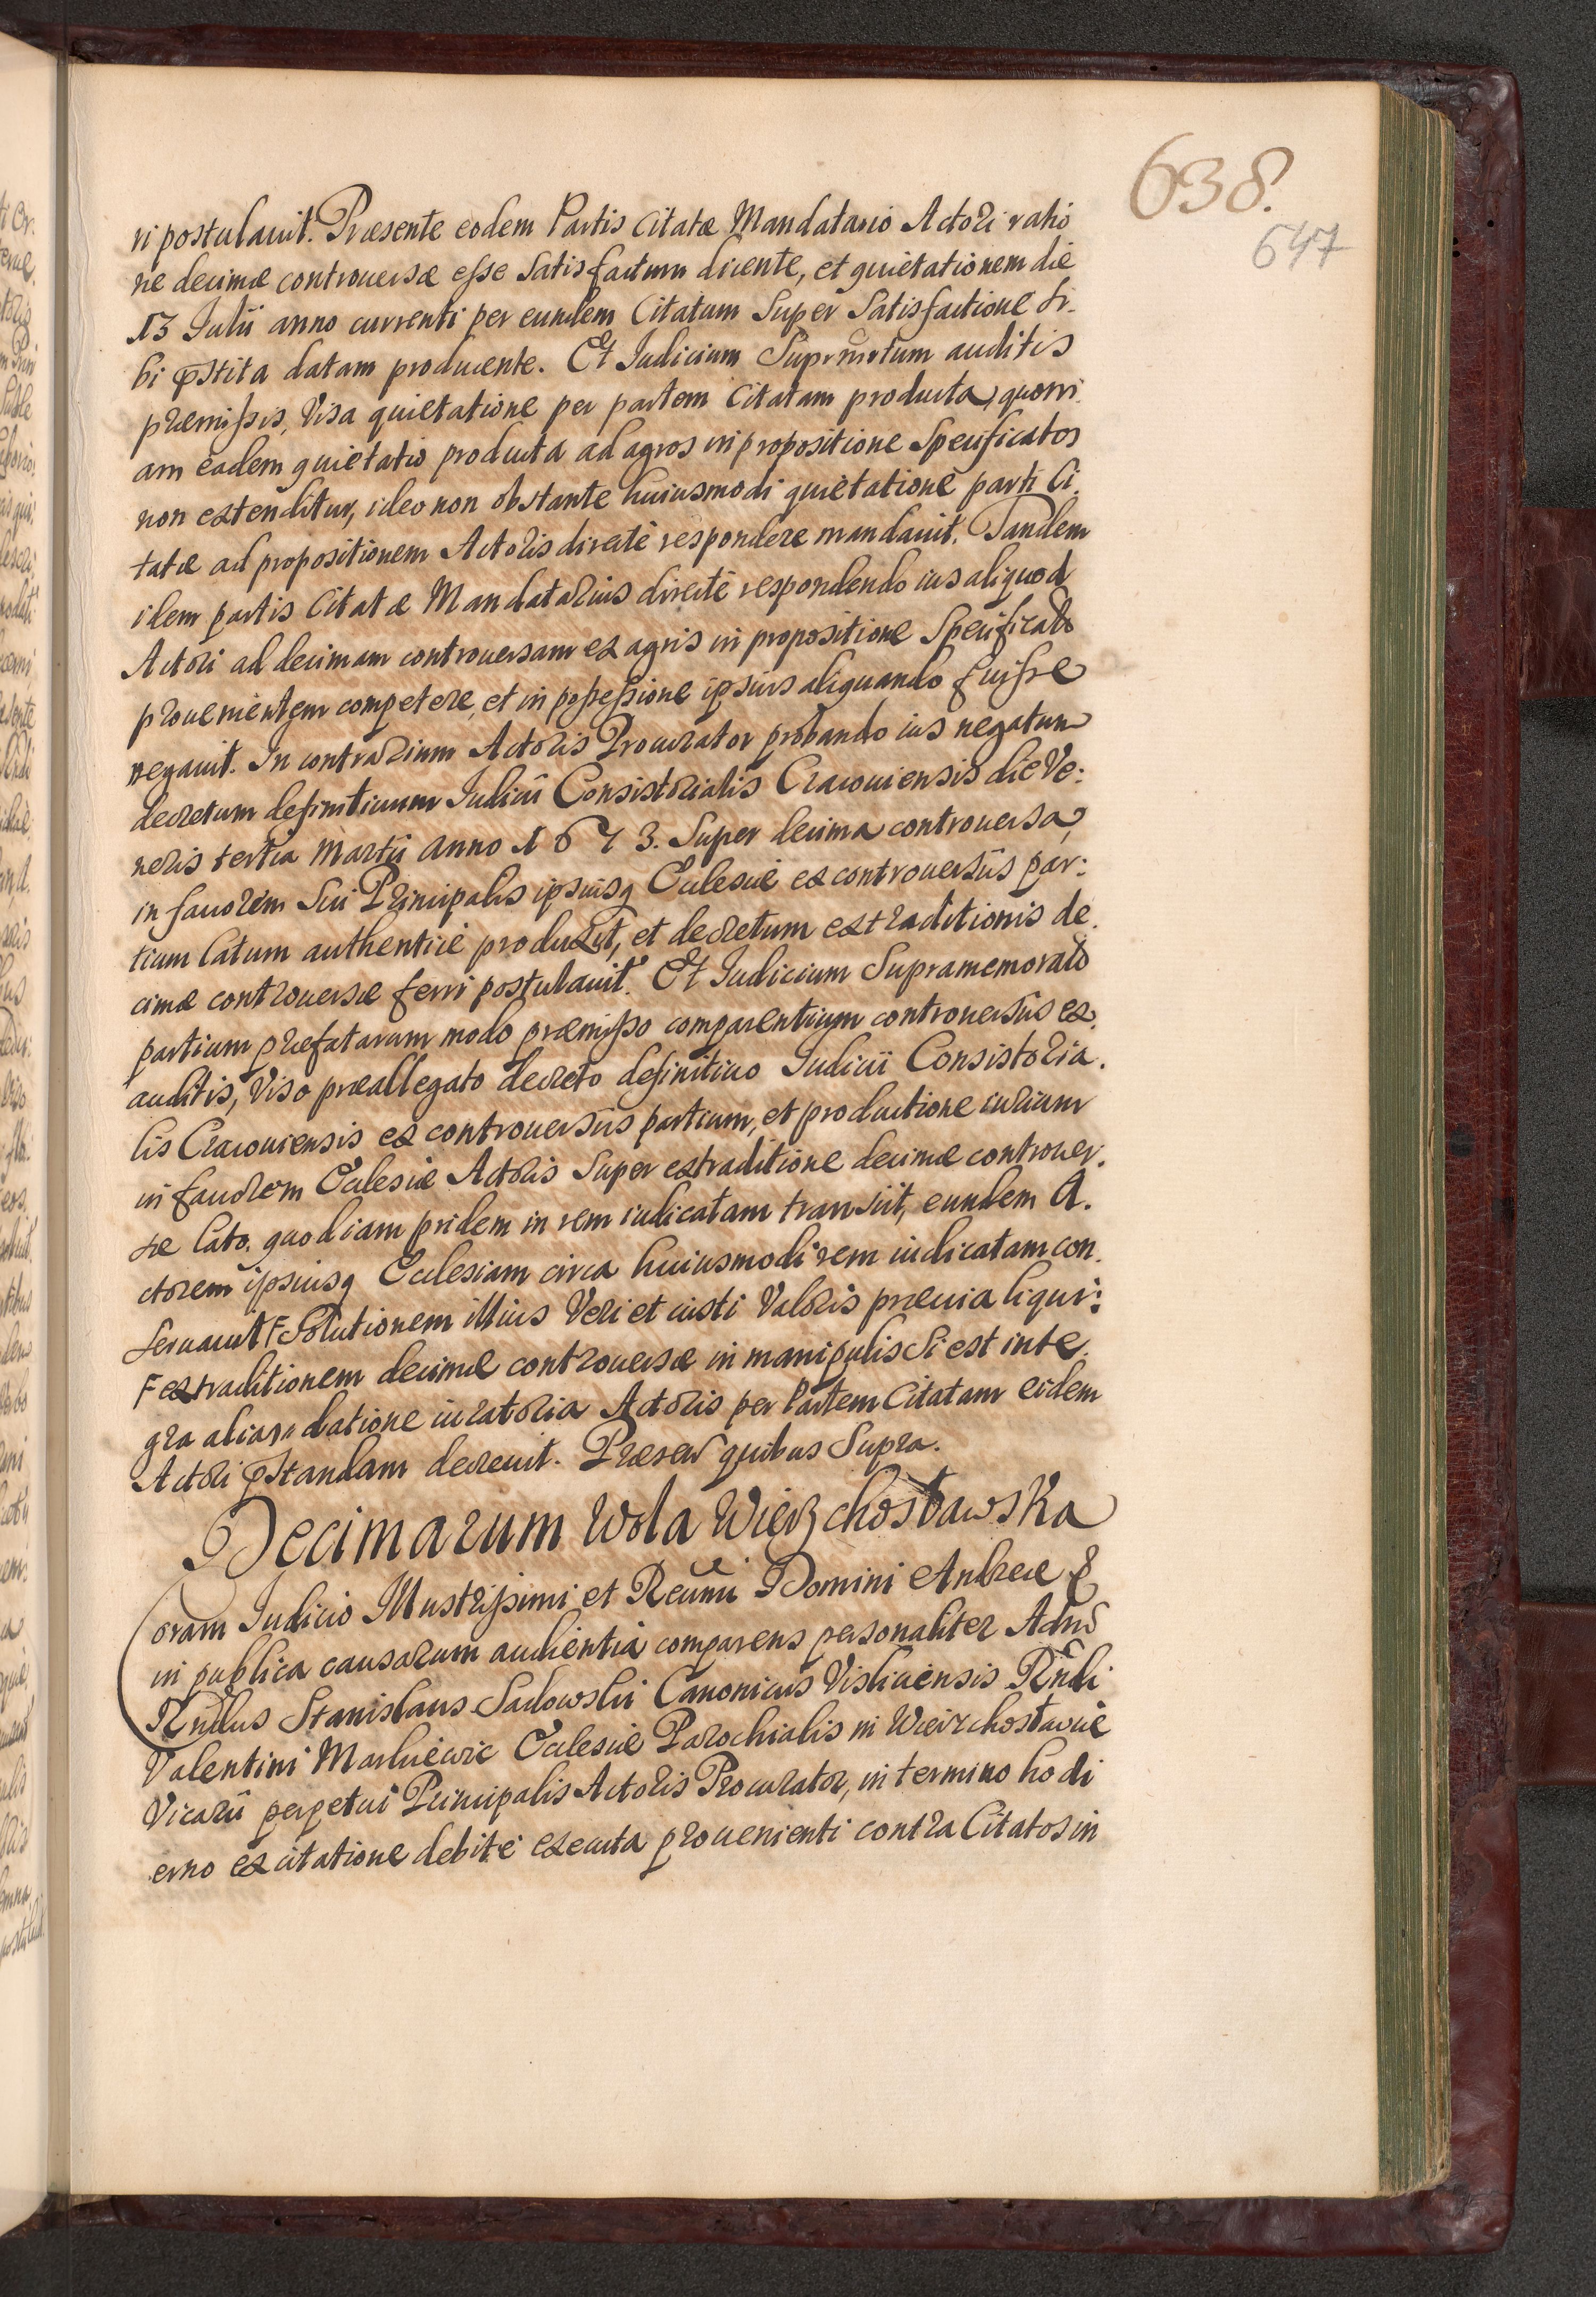 638.
647
ri postulauit. Præsente eodem Partis Citatæ Mandatario Actori ratio
ne decimæ controuersæ esse Satisfactum dicente, et quietationem die
13 Julii anno currenti per eundem Citatum Super Satisfactione si-
bi ꝓstita datam producente. Et Judicium auditis
præmissis, Visa quietatione per partem Citatam producta, quoni
am eadem quietatio producta ad agros in propositione Specificatos
non extenditur, ideo non obstante huiusmodi quietatione parti Ci.
tatæ ad propositionem Actoris directè respondere mandauit. Tandem
idem partis Citatæ Mandatarius directè respondendo ius aliquod
Actori ad decimam controuersam ex agris in propositione Specificatis
prouenientem competere, et in possessione ipsius aliquando fuisse
negauit. In contrarium Actoris Procurator probando ius negatum
decretum definitiuum Judicii Consistorialis Cracouiensis die Ve:
neris tertia Martii anno 1673. Super decima controuersa,
in fauorem Sui Principalis ipsiusq Ecclesiæ ex controuersiis par:
tium latum authenticè produxit, et decretum extraditionis de.
cimæ controuersæ ferri postulauit. Et Judicium Supramemorato
partium præfatarum modo præmisso comparentium controuersiis ex.
auditis, Viso præallegato decreto definitiuo Judicii Consistoria.
lis Cracouiensis ex controuersiis partium, et productione iurium
in fauorem Ecclesiæ Actoris Super extraditione decimæ controuer.
sæ lato. quod iam pridem in rem iudicatam transiit, eundem A.
ctorem ipsiusq Ecclesiam circa huiusmodi rem iudicatam con.
seruauit F Solutionem illius Veri et iusti Valoris præuia liqui:
F extraditionem decimæ controuersæ in manipulis si est inte.
gra alias datione iuratoria Actoris per Partem Citatam eidem
Actori ꝓstandam decreuit. Præsen quibus Supra.
Decimarum Wola Wierzchosławska
Coram Judicio Illustrissimi et Reumi Domini Andreæ &
in publica causarum audientia comparens personaliter Adm
Rndus Stanislaus Sadowski Canonicus Visliciensis Rndi
Valentini Ecclesiæ Parochialis in Wierzchosławice
Vicarii perpetui Principalis Actoris Procurator, in termino hodi
erno ex citatione debitè executa prouenienti contra Citatos in